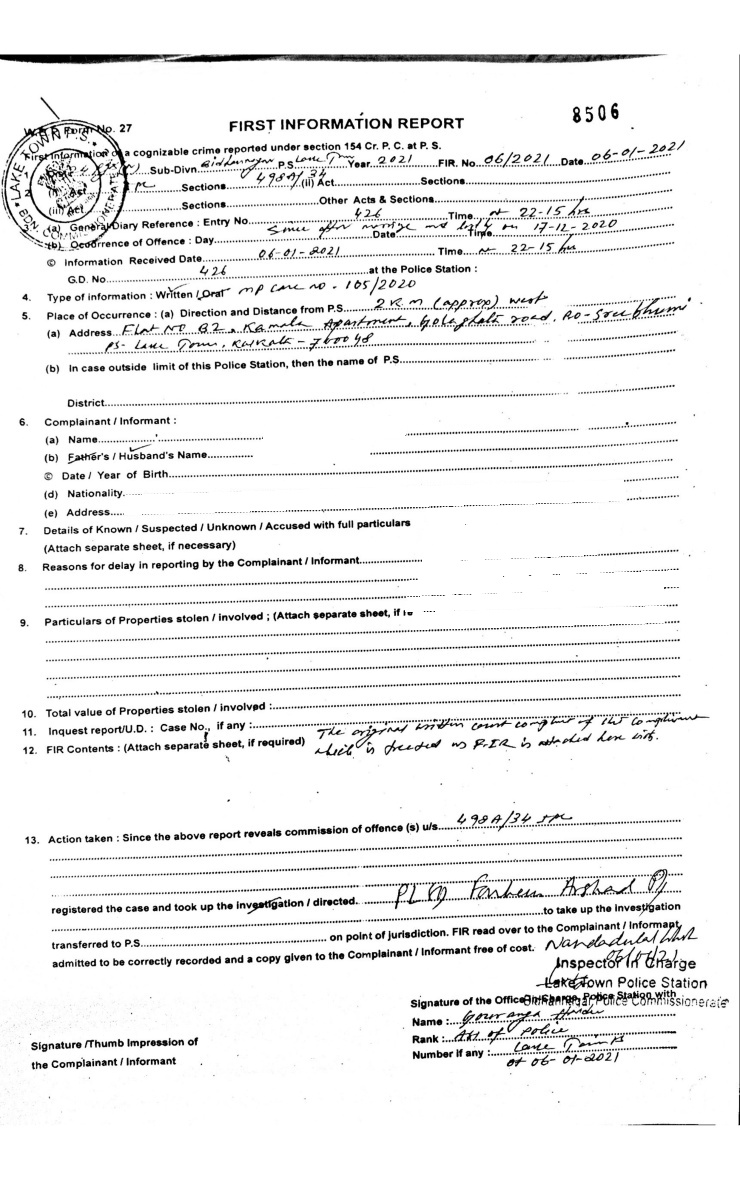 8506
W.B.P. Form No. 27
FIRST INFORMATION REPORT
First Information of a cognizable crime reported under section 154 Cr. P. C. at P. S.
Sub-Divn. Bidhannagar P.S. Lake Town Year 2021 FIR. No 06/2021 Date 06-01-2021
Sections 498A/34 (ii) Act Sections
(iii) Act Sections Other Acts & Sections
(a) General Diary Reference : Entry No. 426 Time at 22-15 hrs
(b) Occurrence of Offence : Day Since after and lastly on 17-12-2020 Date Time
© Information Received Date 06-01-2021 Time at 22-15 hrs
G.D. No 426 at the Police Station :
4. Type of information : Written / Oral MP Case no - 105/2020
5. Place of Occurrence : (a) Direction and Distance from P.S. 2 K.m (approx) west
(a) Address Flat No B2, Kamala Apartment, Golaghata road, PO-Sreebhumi
PS- Lake Town, Kolkata - 700048
(b) In case outside limit of this Police Station, then the name of P.S.
District
6. Complainant / Informant :
(a) Name
(b) Father's / Husband's Name
© Date / Year of Birth
(d) Nationality
(e) Address
7. Details of Known / Suspected / Unknown / Accused with full particulars
(Attach separate sheet, if necessary)
8. Reasons for delay in reporting by the Complainant / Informant
9. Particulars of Properties stolen / involved ; (Attach separate sheet, if
10. Total value of Properties stolen / involved :
11. Inquest report/U.D. : Case No., if any :
12. FIR Contents : (Attach separate sheet, if required) The original written court complaint of the complainant
which is treated as FIR is attached here with.
13. Action taken : Since the above report reveals commission of offence (s) u/s 498A/34 IPC
registered the case and took up the investigation / directed. Farheen Arshad
to take up the Investigation
transferred to P.S. on point of jurisdiction. FIR read over to the Complainant / Informant
admitted to be correctly recorded and a copy given to the Complainant / Informant free of cost. Nandadulal Ghosh
Inspector In Charge
Lake Town Police Station
Signature of the Office In Charge, Police Station with
Name : Gouranga
Rank : ASI of Police
Number if any : Lake Town PS
of 06-01-2021
Signature /Thumb Impression of
the Complainant / Informant